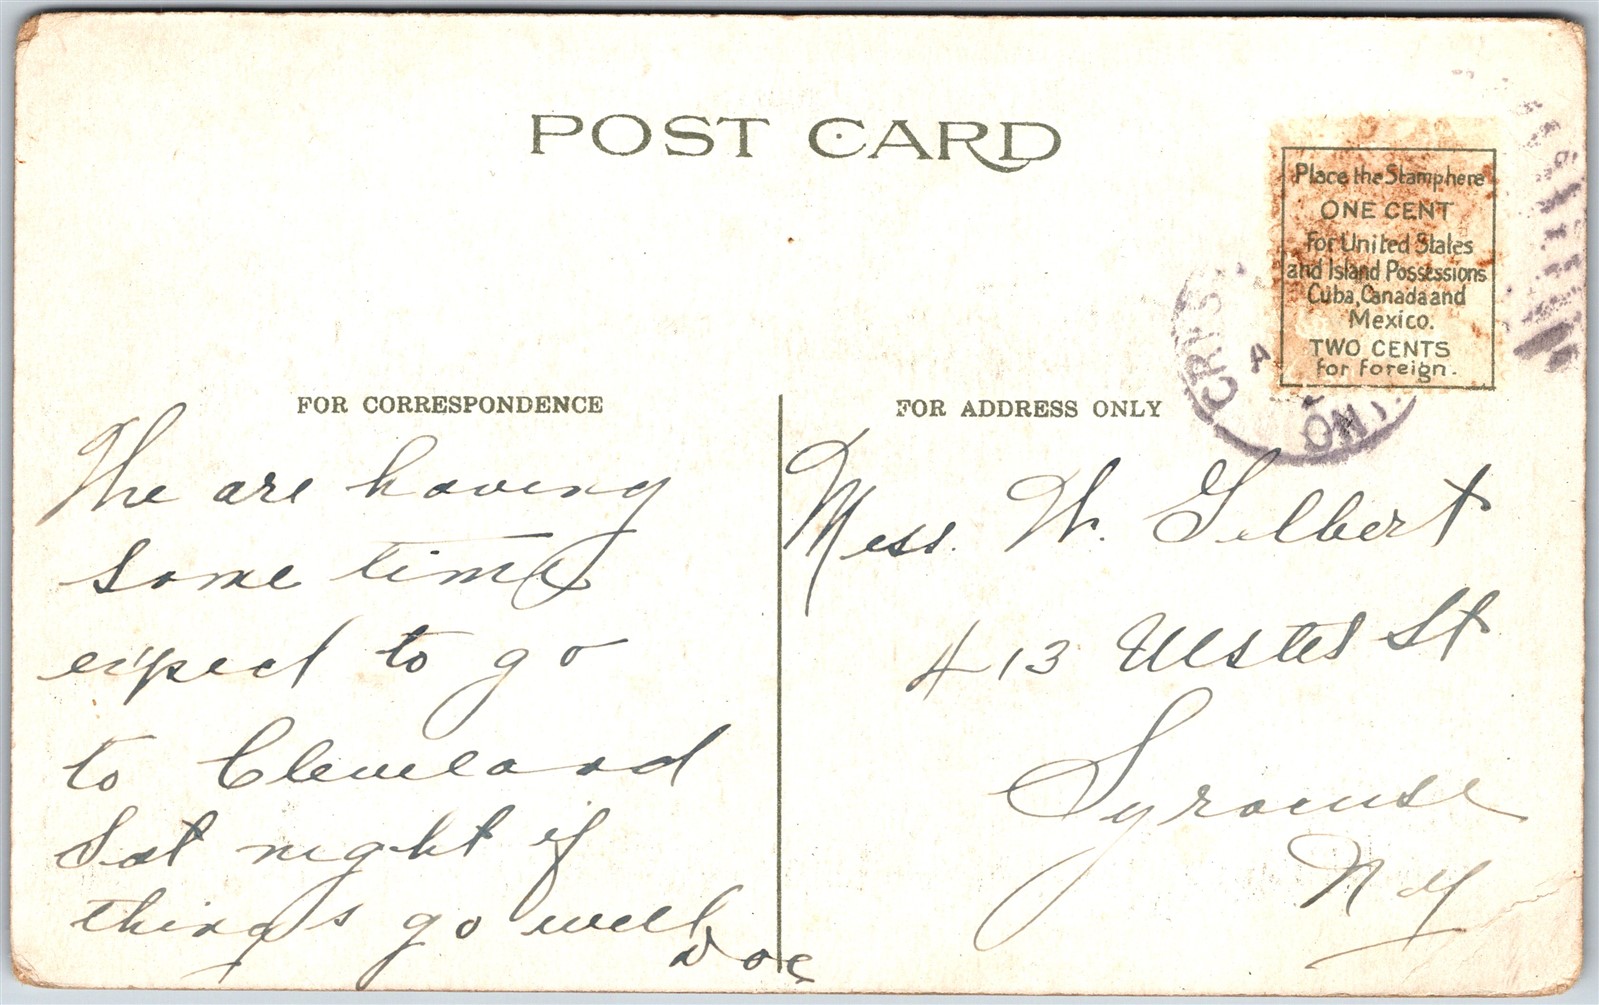 POST CARD
Place the Stamp here
ONE CENT
For United States
and Island Possessions
Cuba, Canada and
Mexico.
TWO CENTS
for Foreign.
CRYS
A
ONT.
FOR CORRESPONDENCE
FOR ADDRESS ONLY
The are having
some time
expect to go
to Cleveland
Sat night if
things go well
Doc
Miss. W. Gilbert
413 Ulster St
Syracuse
N Y